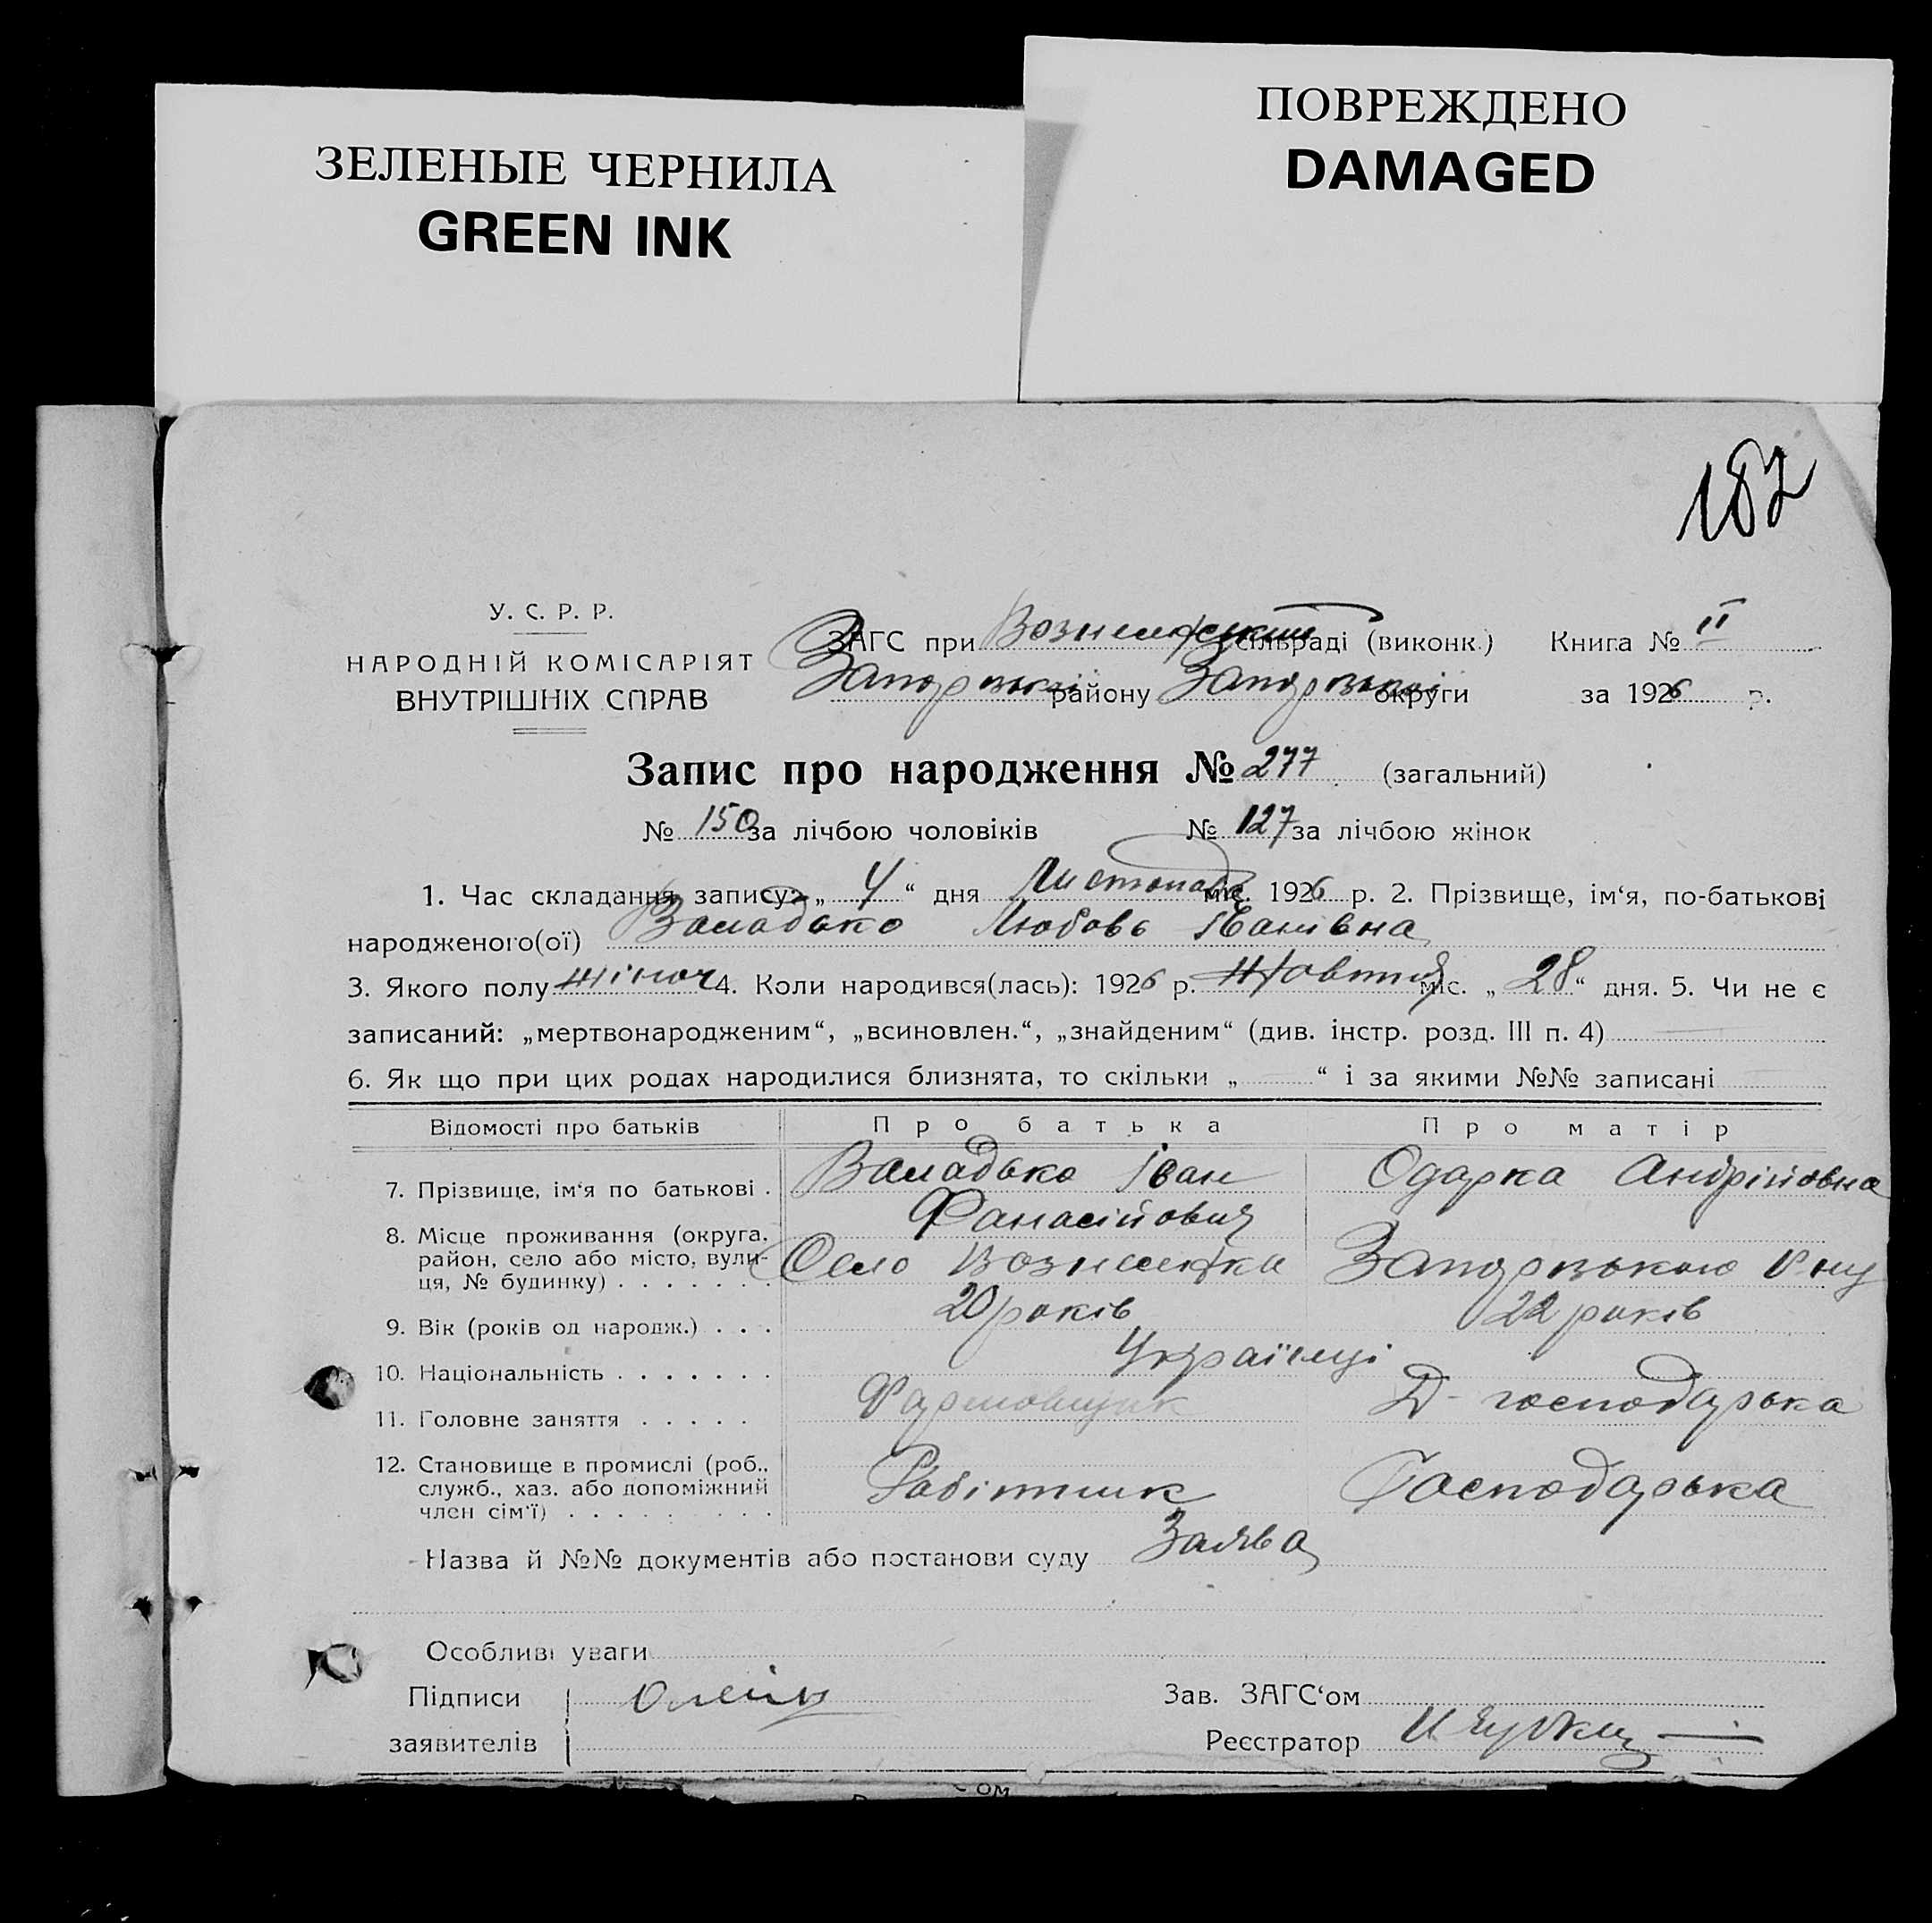 ПОВРЕЖДЕНО
DAMAGED
ЗЕЛЕНЫЕ ЧЕРНИЛА
GREEN INK
182
У. С. Р. Р.
НАРОДНІЙ КОМІСАРІЯТ
ВНУТРІШНІХ СПРАВ
ЗАГС при сільраді (виконк.) Книга № II
району округи за 1926 р.
Запис про народження № 277 (загальний)
№ 150 за лічбою чоловіків № 127 за лічбою жінок
1. Час складання запису: „ 4 “ дня Листопада міс. 1926 р. 2. Прізвище, ім‘я, по-батькові
народженого(ої) Любовь Іванівна
3. Якого полу жіноч 4. Коли народився(лась): 1926 р. Жовтня міс. „ 28 “ дня. 5. Чи не є
записаний: „мертвонародженим“, „всиновлен.“, „знайденим“ (див. інстр. розд. III п. 4)
6. Як що при цих родах народилися близнята, то скільки „ “ і за якими №№ записані
Відомості про батьків Про батька Про матір
7. Прізвище, ім‘я по батькові . Іван Одарка Андрійовна
8. Місце проживання (округа,
район, село або місто, вули-
ця, № будинку) . . . . . . . Село
9. Вік (років од народж.) . . . 20 років 22 років
10. Національність . . . . . . . Українці
11. Головне заняття . . . . . Д-господарька
12. Становище в промислі (роб.,
служб., хаз. або допоміжний
член сім‘ї) . . . . . . . . . Робітник Господарька
Назва й №№ документів або постанови суду Заява
Особливі уваги
Підписи Зав. ЗАГС‘ом
заявителів Реєстратор
ом